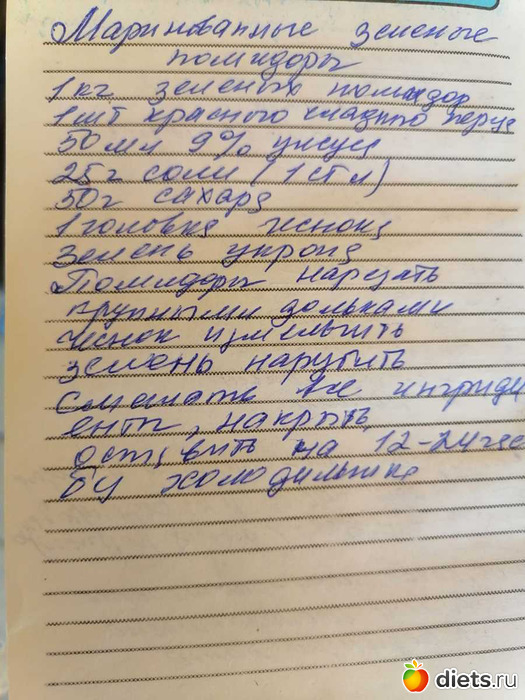 Маринованные зеленые
помидоры
1 кг зеленых помидор
1 шт красного сладкого перца
50 мл 9% уксус
25 г соли (1 ст л)
50 г сахара
1 головка чеснока
Зелень укропа
Помидоры нарезать
крупными дольками
чеснок измельчить
зелень нарубить
Смешать все ингриди
енты, накрыть
оставить на 12-24 час
б/у холодильника
diets.ru